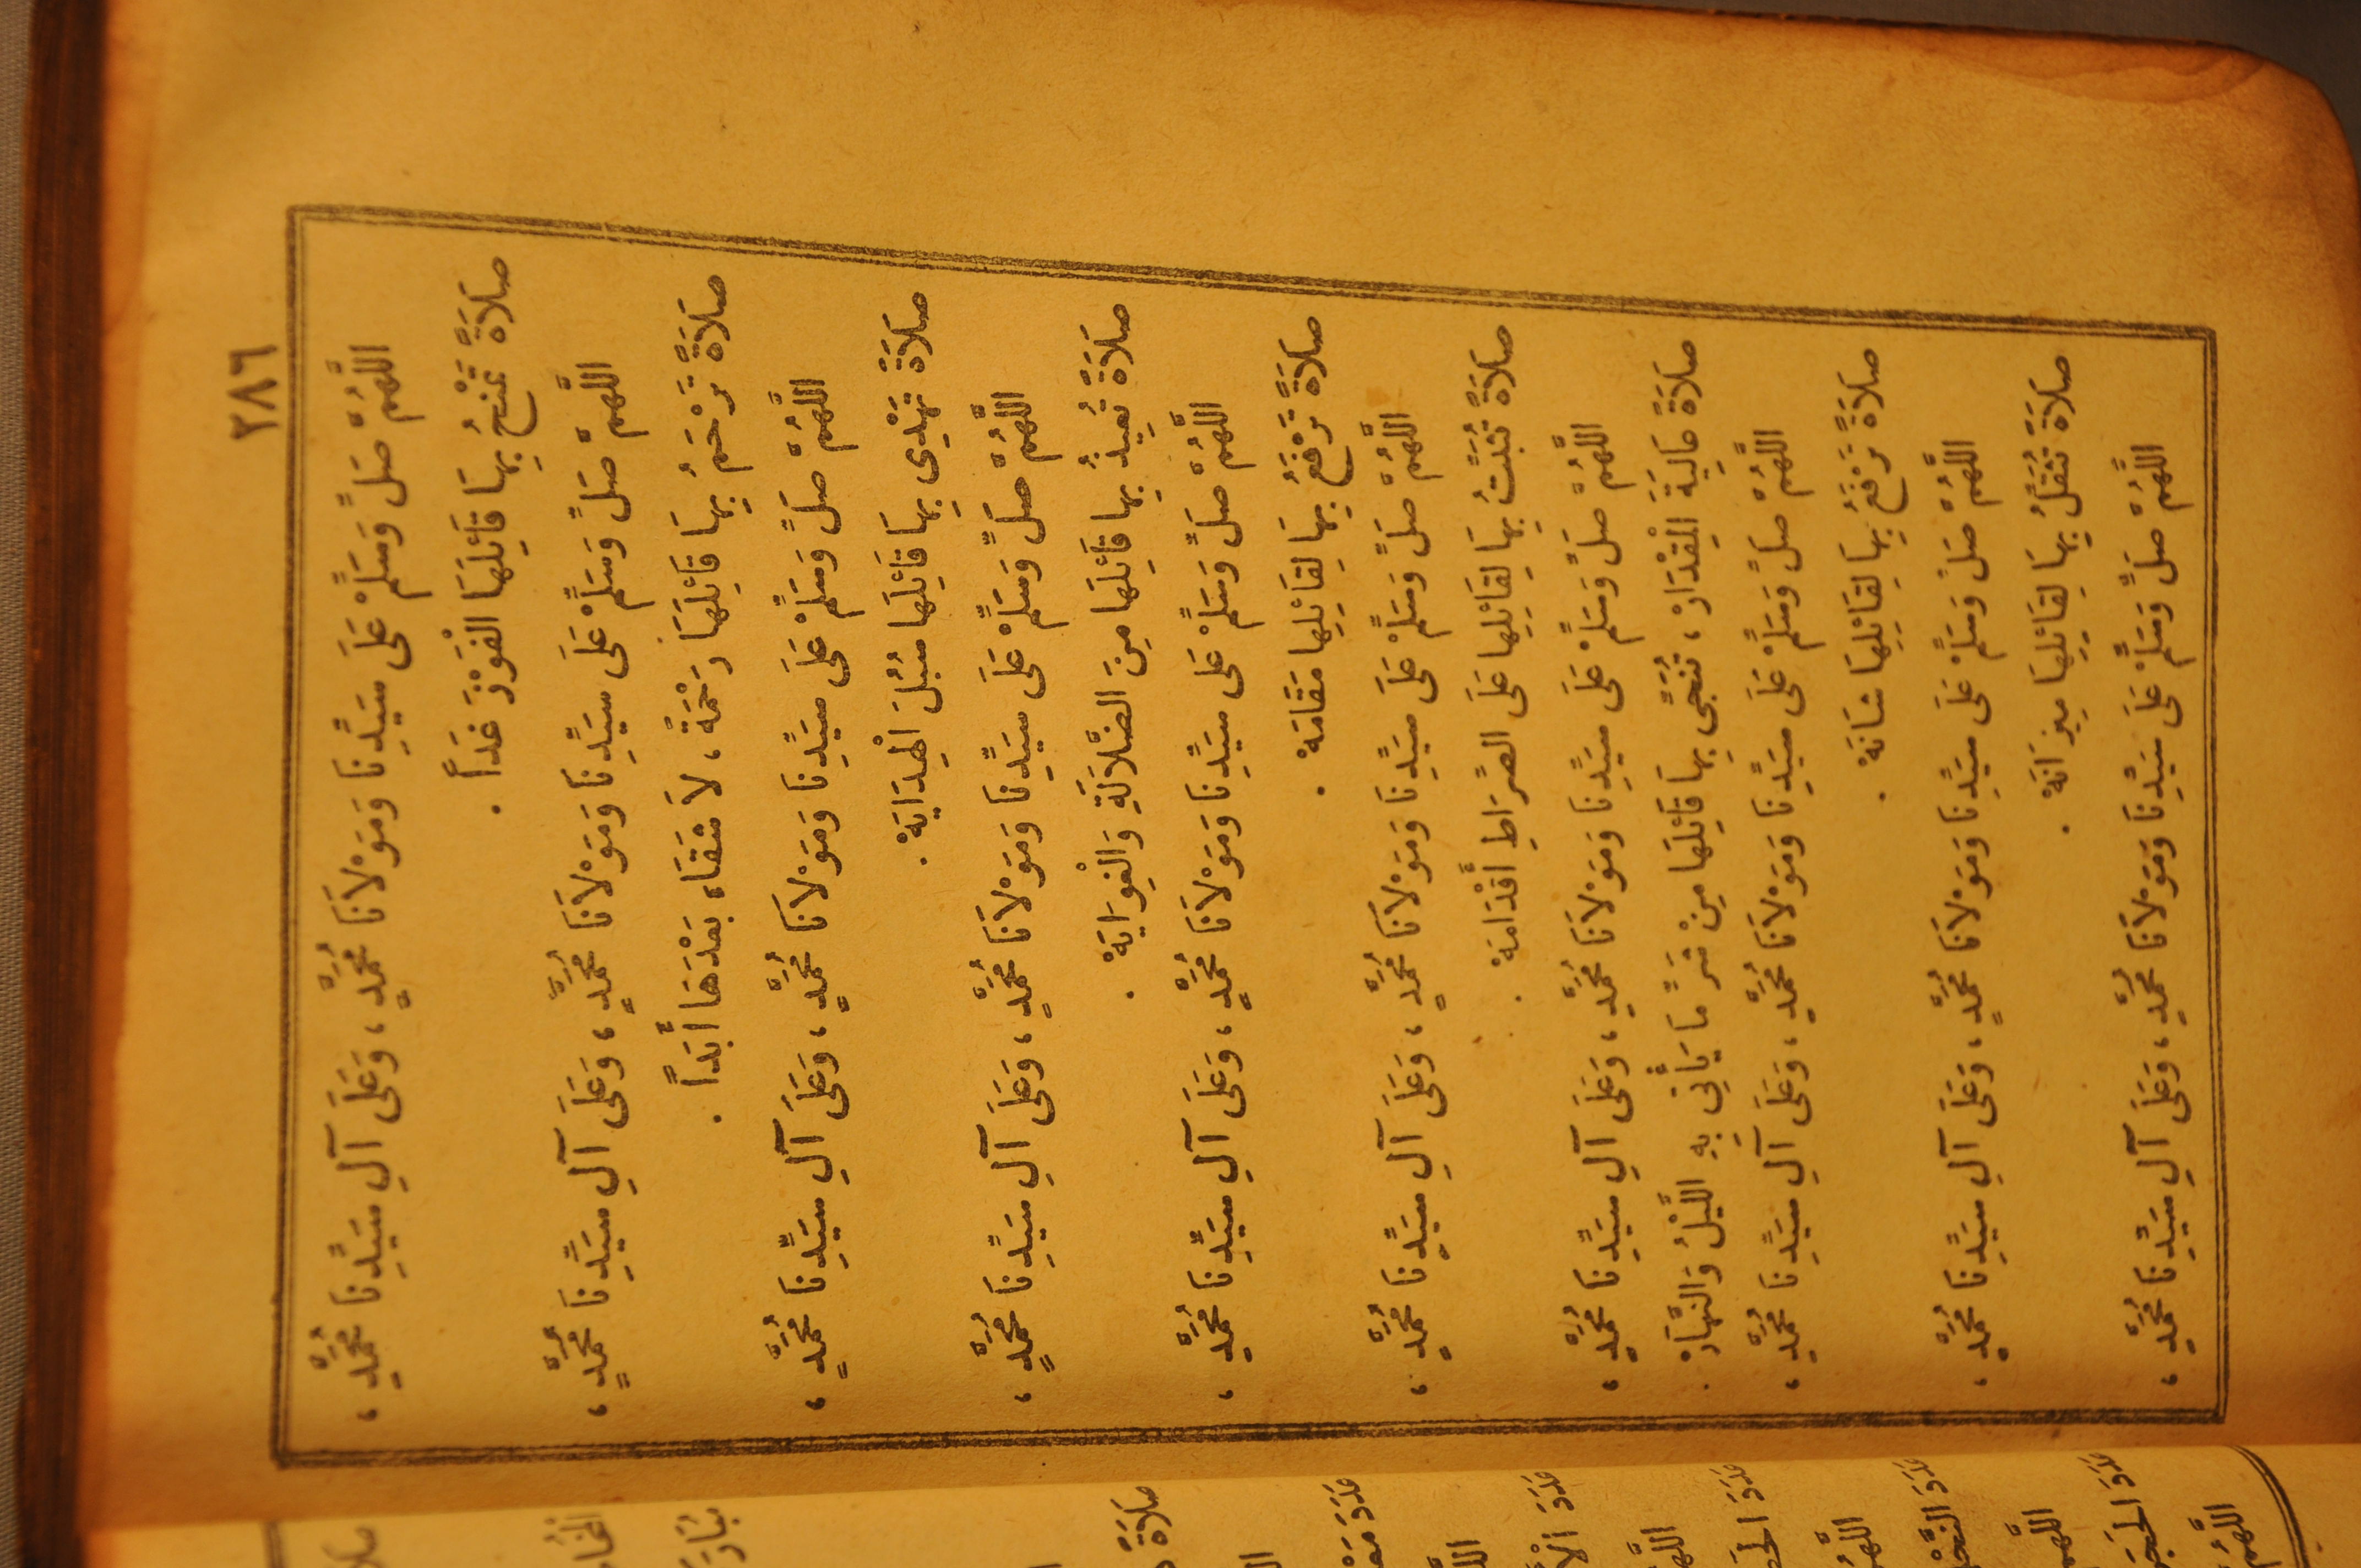 ٢٨٦
اللَّهُمَّ صَلِّ وَسَلِّمْ عَلَى سَيِّدِنَا وَمَوْلَانَا مُحَمَّدٍ ، وَعَلَى آلِ سَيِّدِنَا مُحَمَّدٍ ،
صَلَاةً تَمْنَحُ بِهَا قَائِلَهَا الْفَوْزَ غَدَاً .
اللَّهُمَّ صَلِّ وَسَلِّمْ عَلَى سَيِّدِنَا وَمَوْلَانَا مُحَمَّدٍ ، وَعَلَى آلِ سَيِّدِنَا مُحَمَّدٍ ،
صَلَاةً تَرْحَمُ بِهَا قَائِلَهَا رَحْمَةً ، لَا شَقَاءَ بَعْدَهَا أَبَدَاً .
اللَّهُمَّ صَلِّ وَسَلِّمْ عَلَى سَيِّدِنَا وَمَوْلَانَا مُحَمَّدٍ ، وَعَلَى آلِ سَيِّدِنَا مُحَمَّدٍ ،
صَلَاةً تَهْدِي بِهَا قَائِلَهَا سُبُلَ الْهِدَايَةْ .
اللَّهُمَّ صَلِّ وَسَلِّمْ عَلَى سَيِّدِنَا وَمَوْلَانَا مُحَمَّدٍ ، وَعَلَى آلِ سَيِّدِنَا مُحَمَّدٍ ،
صَلَاةً تُعِيذُ بِهَا قَائِلَهَا مِنَ الضَّلَالَةِ وَالْغِوَايَةْ .
اللَّهُمَّ صَلِّ وَسَلِّمْ عَلَى سَيِّدِنَا وَمَوْلَانَا مُحَمَّدٍ ، وَعَلَى آلِ سَيِّدِنَا مُحَمَّدٍ ،
صَلَاةً تَرْفَعُ بِهَا لِقَائِلِهَا مَقَامَهْ .
اللَّهُمَّ صَلِّ وَسَلِّمْ عَلَى سَيِّدِنَا وَمَوْلَانَا مُحَمَّدٍ ، وَعَلَى آلِ سَيِّدِنَا مُحَمَّدٍ ،
صَلَاةً تُثَبِّتُ بِهَا لِقَائِلِهَا عَلَى الصِّرَاطِ أَقْدَامَهْ .
اللَّهُمَّ صَلِّ وَسَلِّمْ عَلَى سَيِّدِنَا وَمَوْلَانَا مُحَمَّدٍ ، وَعَلَى آلِ سَيِّدِنَا مُحَمَّدٍ ،
صَلَاةً عَالِيَةَ الْمِقْدَارْ ، تُنَجِّي بِهَا قَائِلَهَا مِنْ شَرِّ مَا يَأْتِي بِهِ اللَّيْلُ وَالنَّهَارْ .
اللَّهُمَّ صَلِّ وَسَلِّمْ عَلَى سَيِّدِنَا وَمَوْلَانَا مُحَمَّدٍ ، وَعَلَى آلِ سَيِّدِنَا مُحَمَّدٍ ،
صَلَاةً تَرْفَعُ بِهَا لِقَائِلِهَا شَانَهْ .
اللَّهُمَّ صَلِّ وَسَلِّمْ عَلَى سَيِّدِنَا وَمَوْلَانَا مُحَمَّدٍ ، وَعَلَى آلِ سَيِّدِنَا مُحَمَّدٍ ،
صَلَاةً تُثَقِّلُ بِهَا لِقَائِلِهَا مِيزَانَهْ .
اللَّهُمَّ صَلِّ وَسَلِّمْ عَلَى سَيِّدِنَا وَمَوْلَانَا مُحَمَّدٍ ، وَعَلَى آلِ سَيِّدِنَا مُحَمَّدٍ ،
صَلَاةً
عَدَدَ
عَدَدَ
اللَّهُمَّ
عَدَدَ
اللَّهُمَّ